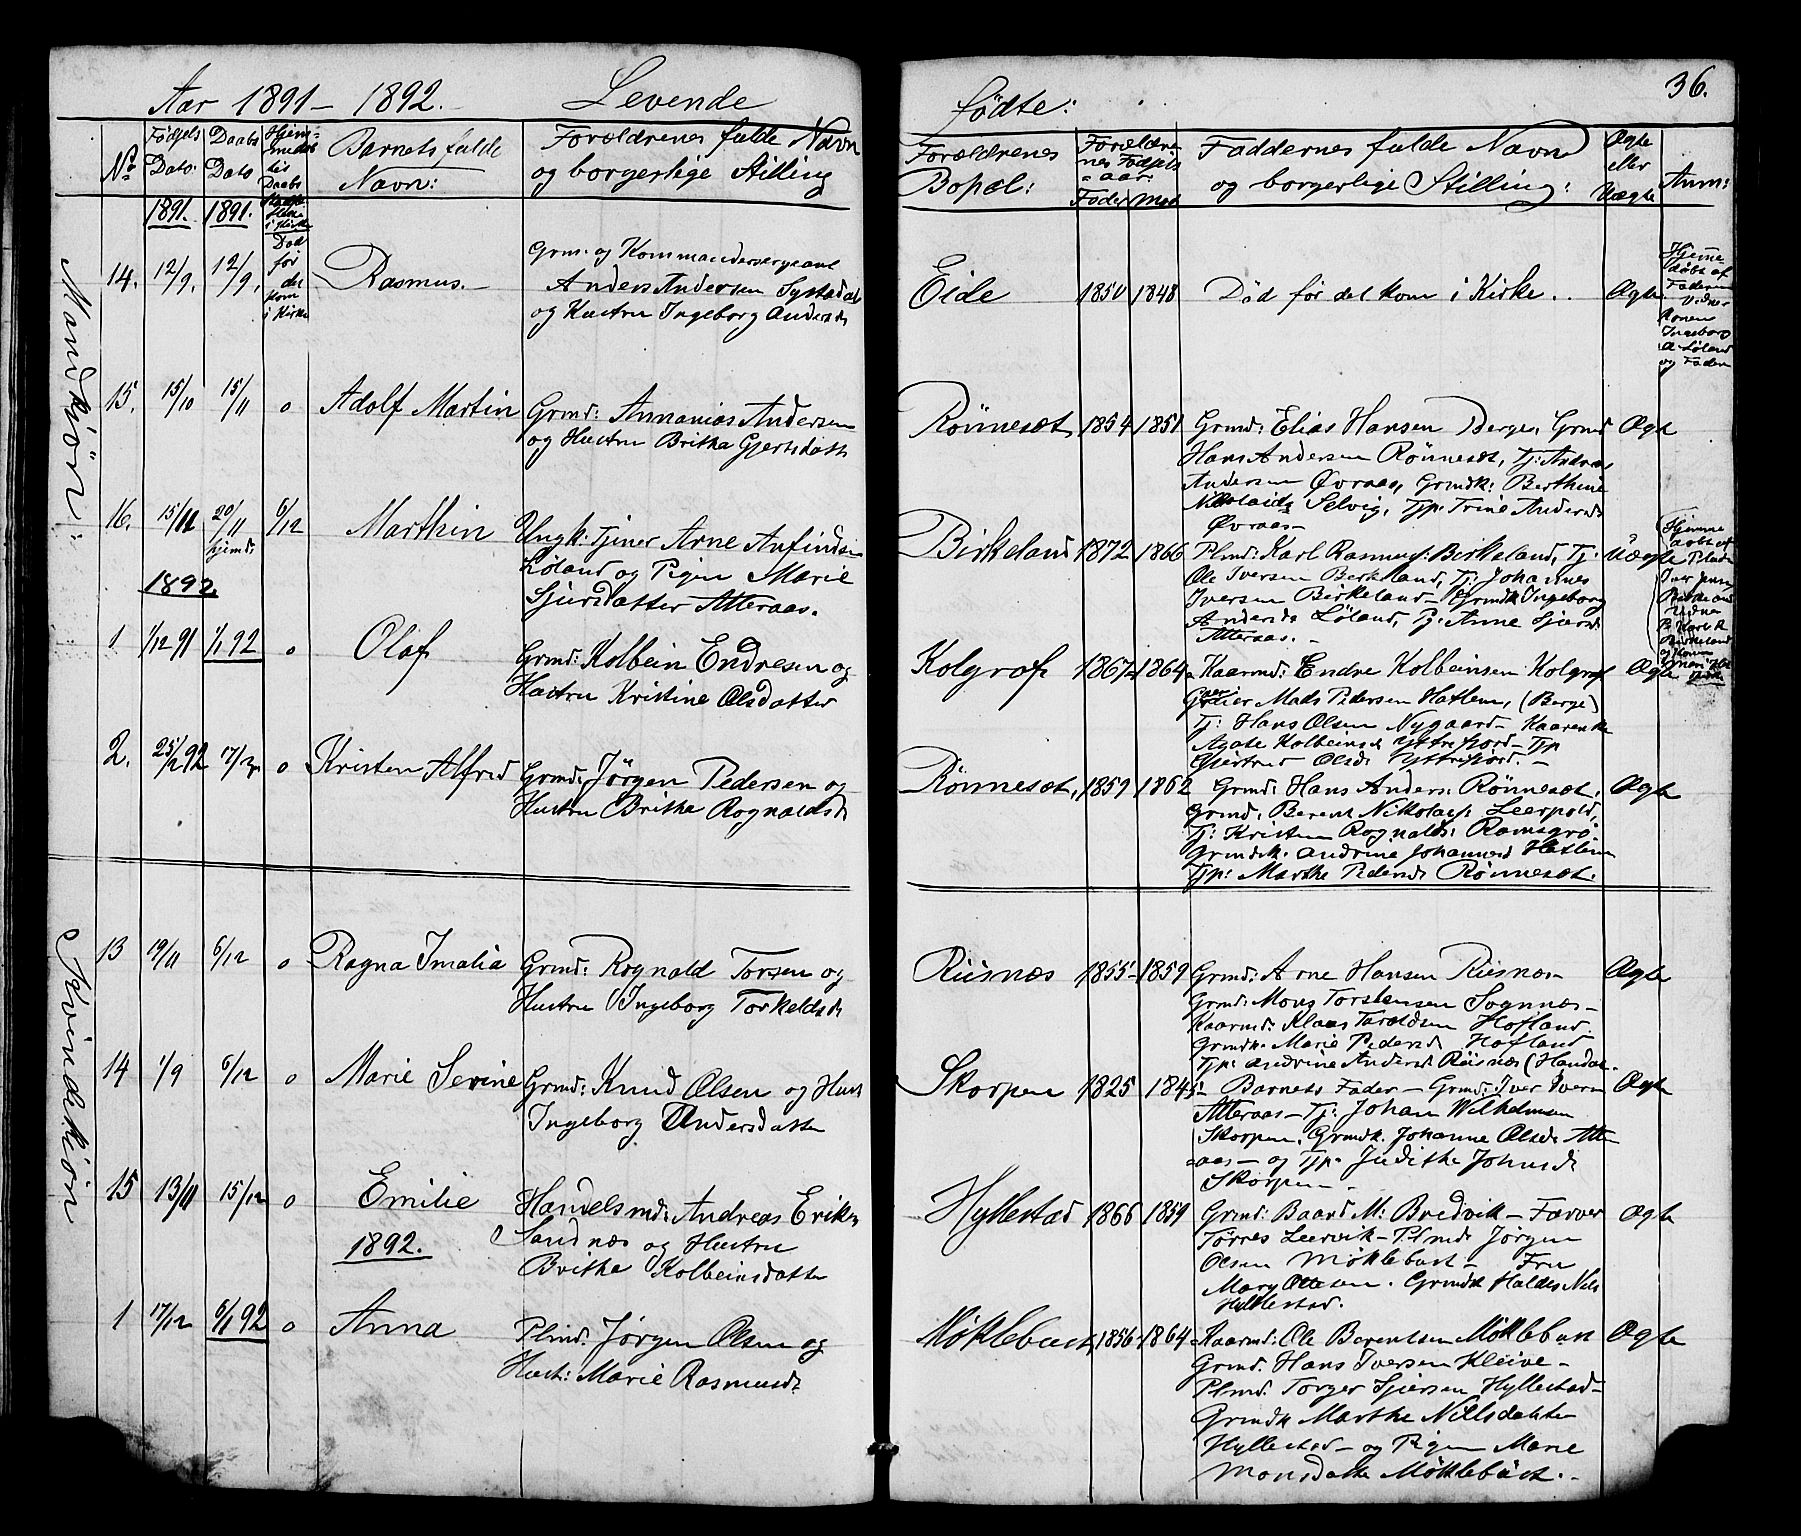 36.
Aar 1891 - 1892. Levende
fødte:
No
Fødsels
Dato:
Daabs
Dato
Barnets fulde
Navn:
Forældrenes fulde Navn
og borgerlige Stilling
Forældrenes
Bopæl:
Fader Mod
Faddernes fulde Navn
og borgerlige Stilling:
Ægte
eller
Uægte
Anm:
1891. 1891.
Mandkjön:
14. 12/9. 12/9.
Død
før
det
kom
i Kirke
Rasmus.
Grm: og Kommandersergeant
Anders Andersen Systadal
og Hustru Ingeborg Andersd
Eide 1850 1848 Død før det kom i Kirke. Ægte
Hjemme
døbt af
Faderen
Vidner
Konen
Ingeborg
A. Løland
og Faderen
15. 15/10 15/11 o Adolf Martin
Grmd: Annanias Andersen
og Hustru Brithe Gjertsdatt
Rönnesæt 1854 1851 Grmd: Elias Hansen Berge, Grmd
Hans Andersen Rönnesæt, Tj: Andreas
Andersen Øvraas, Grmdk: Berthine
Nikolaid: Selvig, Tjp: Trine Andersd
Øvraas- Ægte
16. 15/11 20/11 hjemd: 6/12 Marthin
Ungk: Tjener Arne Anfinds
Løland og Pigen Marie
Sjursdatter Atteraas.
Birkeland 1872 1866 Plmd: Karl Rasmus: Birkeland, Tj:
Ole Iversen Birkeland, Tj: Johannes
Iversen Birkeland - Grmdk Ingeborg
Andersd: Løland, Tj: Anne Sjursd
Atteraas. - Uægte
1892.
1 1/12 91 1/1 92 o Olaf
Grmd: Kolbein Endresen og
Hustru Kristine Olsdatter
Kolgrof 1867 1864 Kaarmd: Endre Kolbeinsen Kolgrof
Mads Pedersen Hatlem, (Berge)
Tj: Hans Olsen Nygaard - Kaarenke
Agate Kolbeinsd Yttrefjord - Tjp
Gjertrud Olsd: Yttrefjord. - Ægte
2. 25/2 92 17/3 o Kristen Alfred
Grmd: Jørgen Pedersen og
Hustru Brithe Rognaldsd
Rönnesæt, 1859 1862 Grmd: Hans Anders: Rönnesæt,
Grmd: Berent Nikolays: Leerpold,
Tj: Kristen Rognalds: Ramsgrø
Grmdk: Andrine Johannesd Hatlem
Tjp: Marthe Pedersd Rönnesæt. Ægte
Kvindekön
13 19/11 6/12 o Ragna Imalia
Grmd: Rognald Torsen og
Hustru Ingeborg Torkeldsd
Riisnæs 1855 1859 Grmd: Arne Hansen Riisnæs
Grmd: Mons Torstensen Sognnæs -
Kaarmd: Klaas Taraldsen Hofland
Grmdk: Marie Pedersd Hofland
Tjp: Andrine Andersd Riisnæs Ægte
14 1/9 6/12 o Marie Severine
Grmd: Knud Olsen og Hust
Ingeborg Andersdatter
Skorpen 1825 1845 Barnets Fader - Grmd: Iver Ivers
Atteraas - Tj: Johan Wilhelmsen
Skorpen, Grmdk. Johanne Olsd: Atte-
aas - og Tjp. Judithe Johnsd
Skorpen - Ægte
15 13/11 15/12 o Emilie
Handelsmd: Andreas Eriks
Sandnæs og Hustru
Brithe Kolbeinsdatter
Hyllestad 1866 1859 Grmd: Baard M: Bredvik - Farver
Torres Leervik - Plmd: Jørgen
Olsen Møklebust - Fru
Mary Ottesen. Grmdk Haldis Nils
Hyllestad. Ægte
1892.
1 17/12 6/1 92 o Anna
Plmd. Jørgen Olsen og
Hust: Marie Rasmusd:
Møklebust 1856 1864 Kaarmd: Ole Berentsen Møklebust
Grmd. Hans Iversen Kleive -
Plmd: Torger Sjursen Hyllestad -
Grmdk Marthe Nillsdatter
Hyllestad - og Pigen Marie
Monsdatte Møklebust. - Ægte